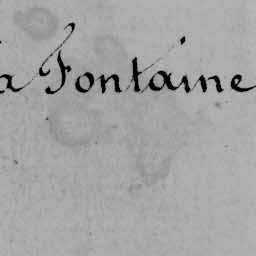 a Fontaine